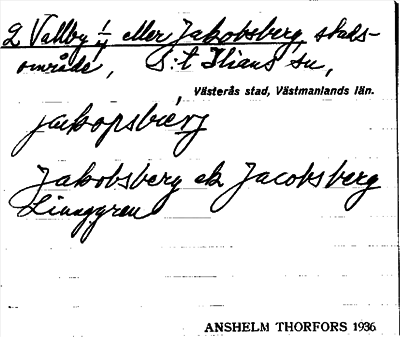 2 Vallby 1/1 eller Jakobsberg, stads-
område, S:t Ilians sn,
Västerås stad, Västmanlands län.
jakopsbærj
Jakobsberg ek Jacobsberg
Linggren
ANSHELM THORFORS 1936